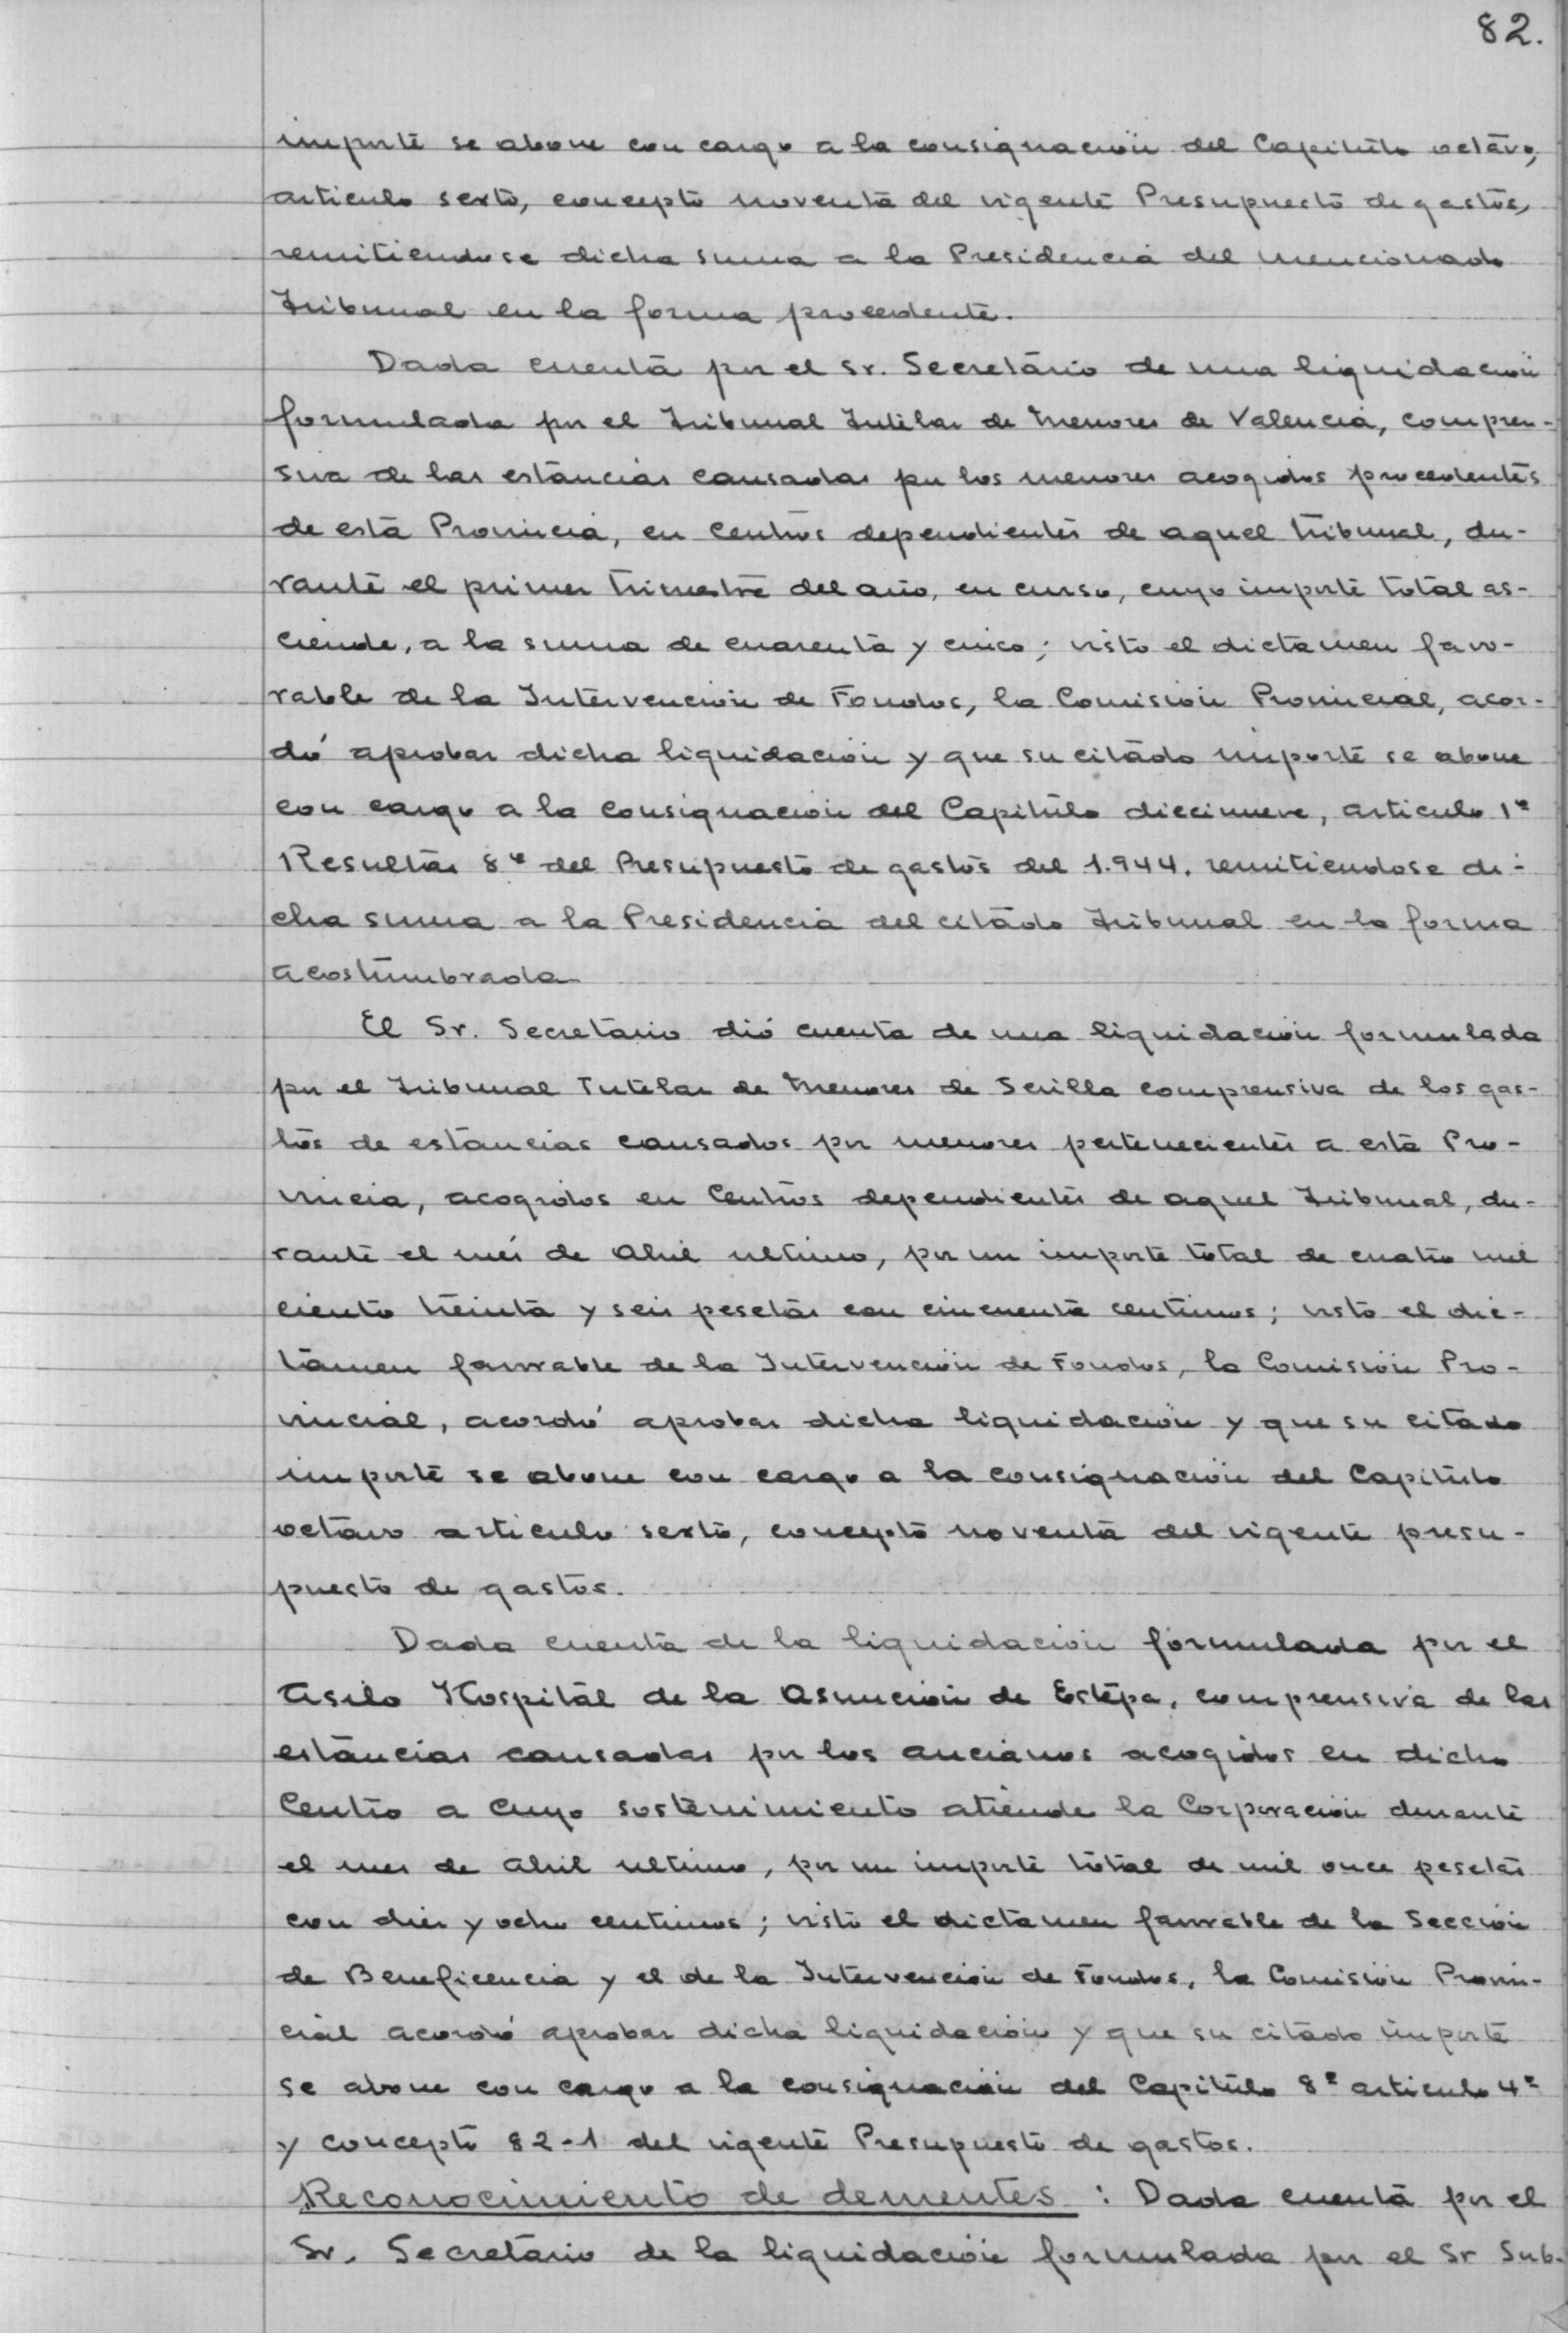 82.
importe se abone con cargo a la consignación del Capitulo octavo,
articulo sexto, concepto noventa del vigente Presupuesto de gastos,
remitiendose dicha suma a la Presidencia del mencionado
Tribunal en la forma procedente.
Dada cuenta por el Sr. Secretario de una liquidación
formulada por el Tribunal Tutelar de Menores de Valencia, compren-
siva de las estancias causadas por los menores acogidos procedentes
de esta Provincia, en Centros dependientes de aquel tribunal, du-
rante el primer trimestre del año, en curso, cuyo importe total as-
ciende, a la suma de cuarenta y cinco; visto el dictamen favo-
rable de la Intervención de Fondos, la Comisión Provincial, acor-
dó aprobar dicha liquidación y que su citado importe se abone
con cargo a la consignación del Capitulo diecinueve, articulo 1º
Resultas 8º del Presupuesto de gastos del 1.944. remitiendose di-
cha suma a la Presidencia del citado Tribunal en la forma
acostumbrada
El Sr. Secretario dió cuenta de una liquidación formulada
por el Tribunal Tutelar de Menores de Sevilla comprensiva de los gas-
tos de estancias causados por menores pertenecientes a esta Pro-
vincia, acogidos en Centros dependientes de aquel Tribunal, du-
rante el més de Abril ultimo, por un importe total de cuatro mil
ciento treinta y seis pesetas con cincuenta centimos; visto el dic-
tamen favorable de la Intervención de Fondos, la Comisión Pro-
vincial, acordó aprobar dicha liquidación y que su citado
importe se abone con cargo a la consignación del Capitulo
octavo articulo sexto, concepto noventa del vigente presu-
puesto de gastos.
Dada cuenta de la liquidación formulada por el
Asilo Hospital de la Asunción de Estepa, comprensiva de las
estancias causadas por los ancianos acogidos en dicho
Centro a cuyo sostenimiento atiende la Corporación durante
el mes de Abril ultimo, por un importe total de mil once pesetas
con diez y ocho centimos; visto el dictamen favorable de la Sección
de Beneficencia y el de la Intervención de Fondos, la Comisión Provin-
cial acordó aprobar dicha liquidación y que su citado importe
se abone con cargo a la consignación del Capitulo 8º articulo 4º
y concepto 82-1 del vigente Presupuesto de gastos.
Reconocimiento de dementes : Dada cuenta por el
Sr. Secretario de la liquidación formulada por el Sr Sub-